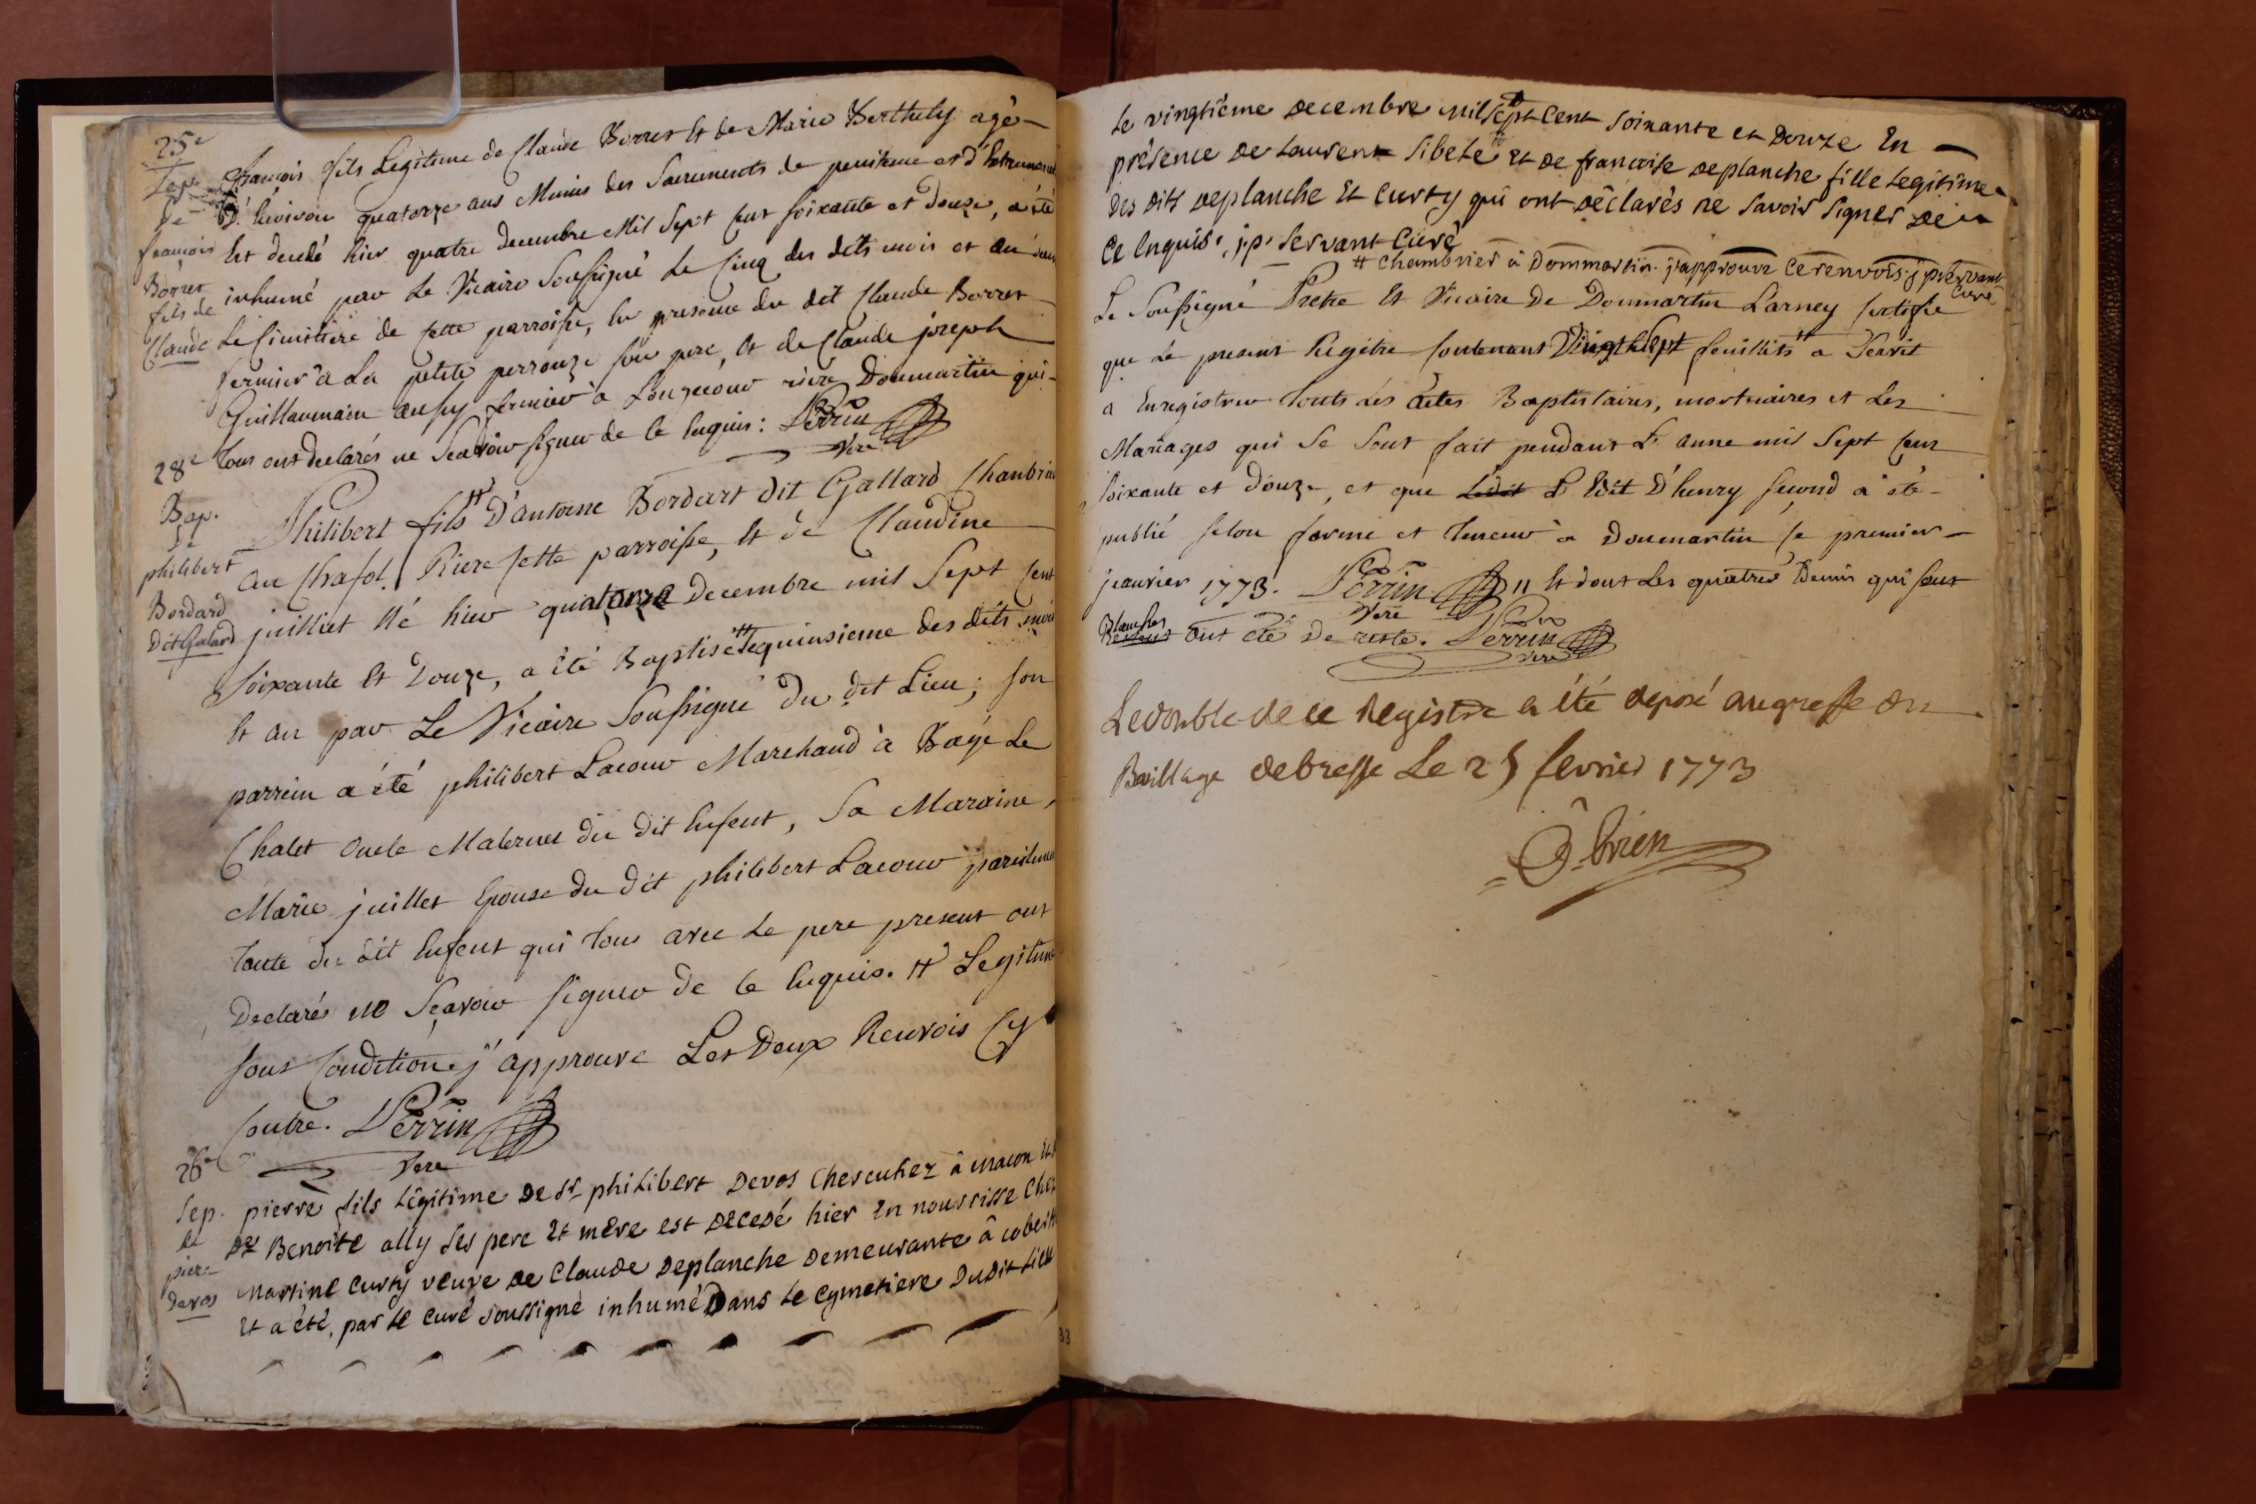 25e
Sep.
de
françois
Borrer
fils de
Claude
françois fils Legitime de Claude Borrer Et de Marie Berthely agé
D'Environ quatorze ans Munis des Sacrements de penitence et d'
Est decedé hier quatre decembre Mil Sept Cent soixante et douze, a été
inhumé par Le Vicaire Soussigné Le Cinq des dits mois et an dans
Le Cimitiere de Cette parroisse, En presence du dit Claude Borrer
fermier a La petite perrouze son pere, Et de Claude joseph
Guillaumain aussy fermier à Longecour rière Donmartin qui
tous ont declarés ne Scavoir signer de ce Enquis: Perrin
Vere
28e
Bap.
de
philibert
Bordard
dit Galard
Philibert fils # D'antoine Bordart dit Gallard
au Chafol Riere Cette parroisse, Et de Claudine
juilliet Né hier quatorze Decembre mil Sept Cent
soixante Et Douze, a été Baptisé # Le quinsieme des dits mois
Et an par Le Vicaire Soussigné du dit Lieu; son
parrein a été philibert Lacour Marchand à Bagé Le
Chatel oncle Maternel du dit Enfent, Sa Maraine,
Marie juillet Epouse du dit philibert Lacour
tante du dit Enfent qui tous avec Le pere present ont
Declarés ne Sçavoir signer de ce Enquis. # Legitime
sous Condition j'approuve Les Deux Renvois Cy
Contre. Perrin
Vere
26e
Sep.
de
piere
devos
pierre fils Légitime De Sr philibert Devos Chercutier à macon Et
De Benoite ally ses pere Et mère est Decedé hier En nourrisse Chez
Martine Curty veuve De Claude Deplanche Demeurante â
Et a été, par Le Curé soussigné inhumé Dans Le Cymetiere Dudit Lieu
Le vingtième Decembre mil sept Cent soixante et Douze En
présence De Laurent Sibele # Et De françoise Deplanche fille Legitime
Des Dits Deplanche Et Curty qui ont Déclarés ne savoir signer De
Ce Enquis, j:p: servant Curé
# Chambrier à Dommartin. j'approuve Ce renvois. j p servant
Curé
Le Soussigné Pretre Et Vicaire De Donmartin Larney Certifie
que Le present Regitre Contenant Vingt Sept feuillets # a Servit
a Enregistrer touts Les actes Baptistaires, mortuaires et Les
Mariages qui Se Sont fait pendant L'anne mil Sept Cent
soixante et Douze, et que L'Edit D'henry second a été
publié selon forme et teneur à Donmartin Le premier
jeanvier 1773. Perrin # Et dont Les quatres Demis qui sont
Vere
Blanches ont été De reste. Perrin
Vere
Le double de ce Registre a été deposé au greffe du
Baillage de bresse Le 25 fevrier 1773
O-brien